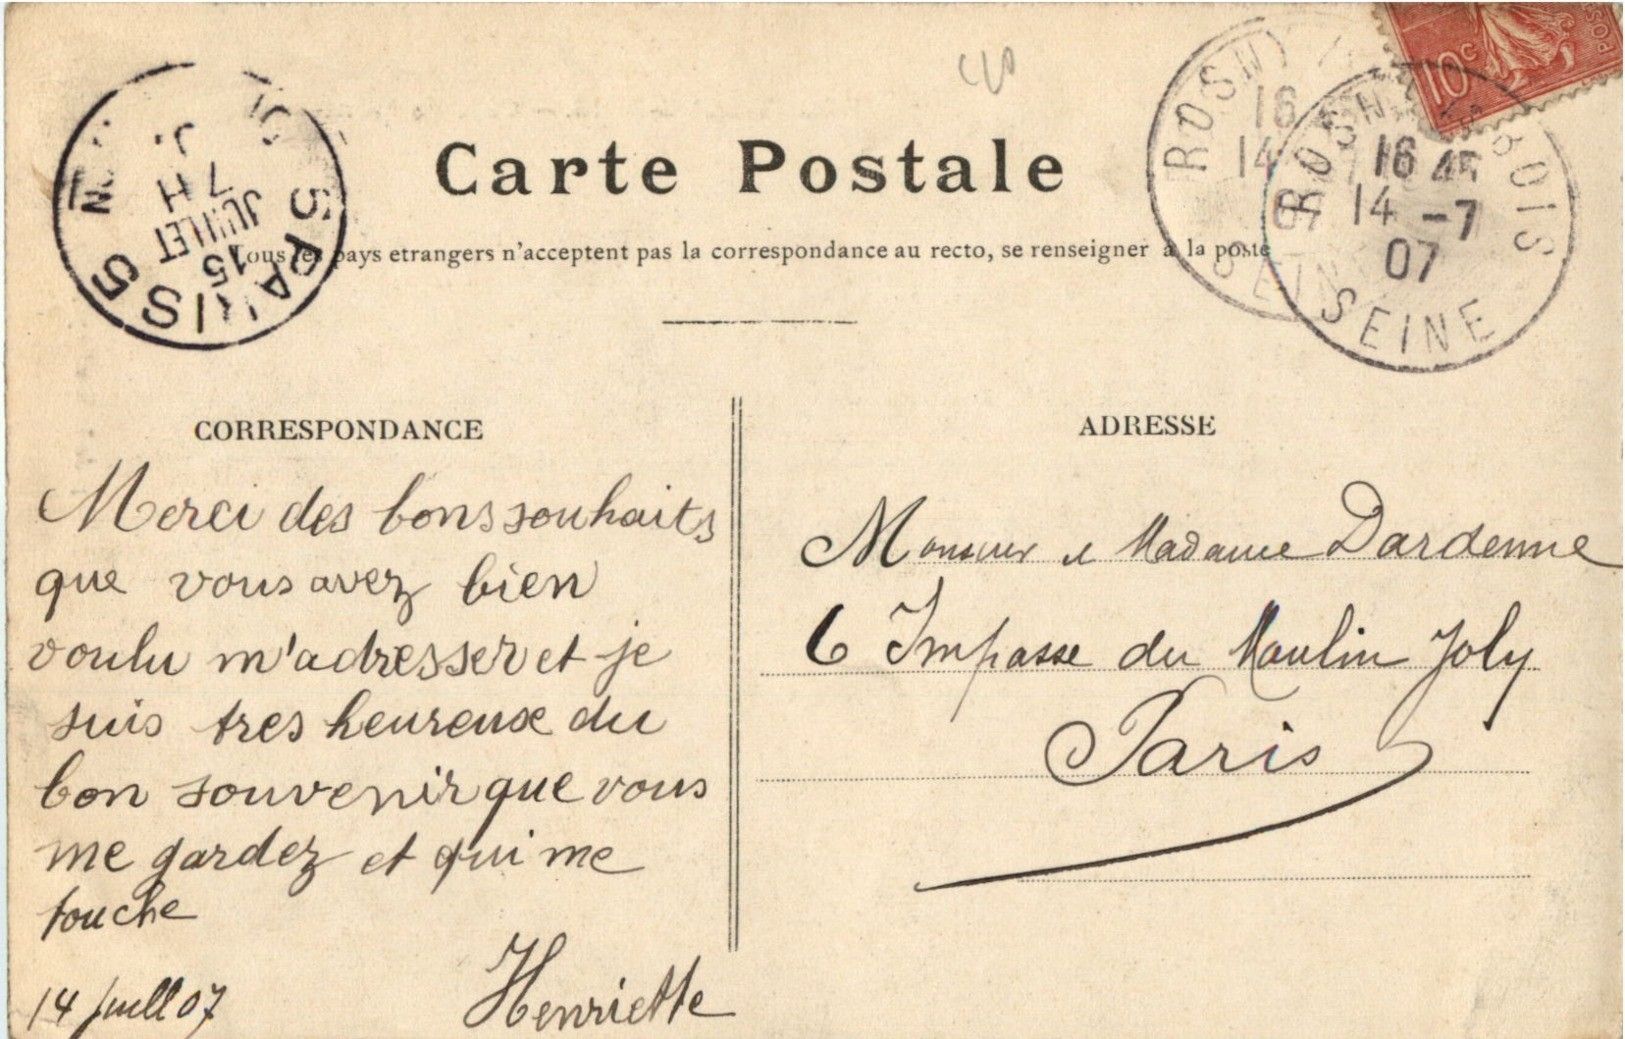 Carte Postale
Tous les pays etrangers n'acceptent pas la correspondance au recto, se renseigner à la poste
5 PARIS 5
J.
7 H
JUILLET
15
ROSNY
16
14
07
SEINE
ROSNY BOIS
16 45
14 -7
07
SEINE
10c
POS
CORRESPONDANCE
Merci des bons souhaits
que vous avez bien
voulu m'adresser et je
suis tres heureuse du
bon souvenir que vous
me gardez et qui me
touche
14 Juill 07
Henriette
ADRESSE
Monsieur et Madame Dardenne
6 Impasse du Moulin Joly
Paris